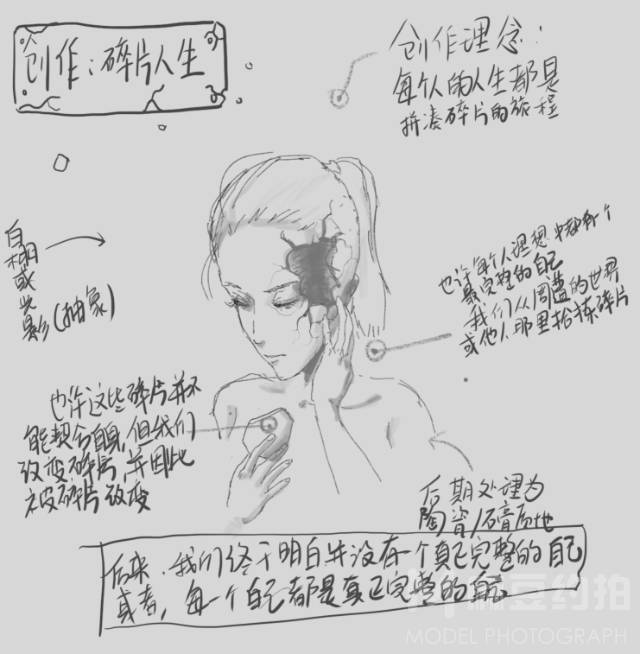 创作：碎片人生
创作理念：
每个人的人生都是
拼凑碎片的旅程
白棚或光影(抽象)
也许每个人理想中都有个
最完整的自己
我们从周遭的世界
或他人那里拾拣碎片
也许这些碎片并不
能契合自身，但我们
改变碎片，并因此
被碎片改变
后期处理为
陶瓷/石膏质地
后来，我们终于明白并没有一个真正完整的自己
或者，每一个自己都是真正完整的自己
约拍
MODEL PHOTOGRAPH